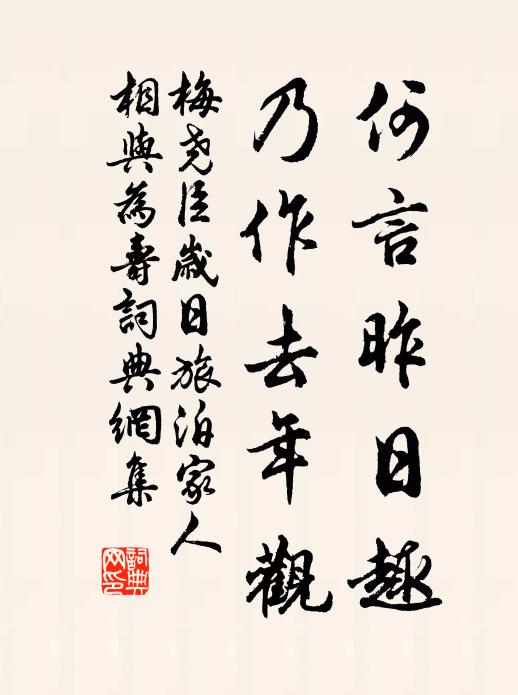 何言昨日趣
乃作去年觀
梅堯臣歲日旅泊家人
相與為壽詞典網集
詞典网印